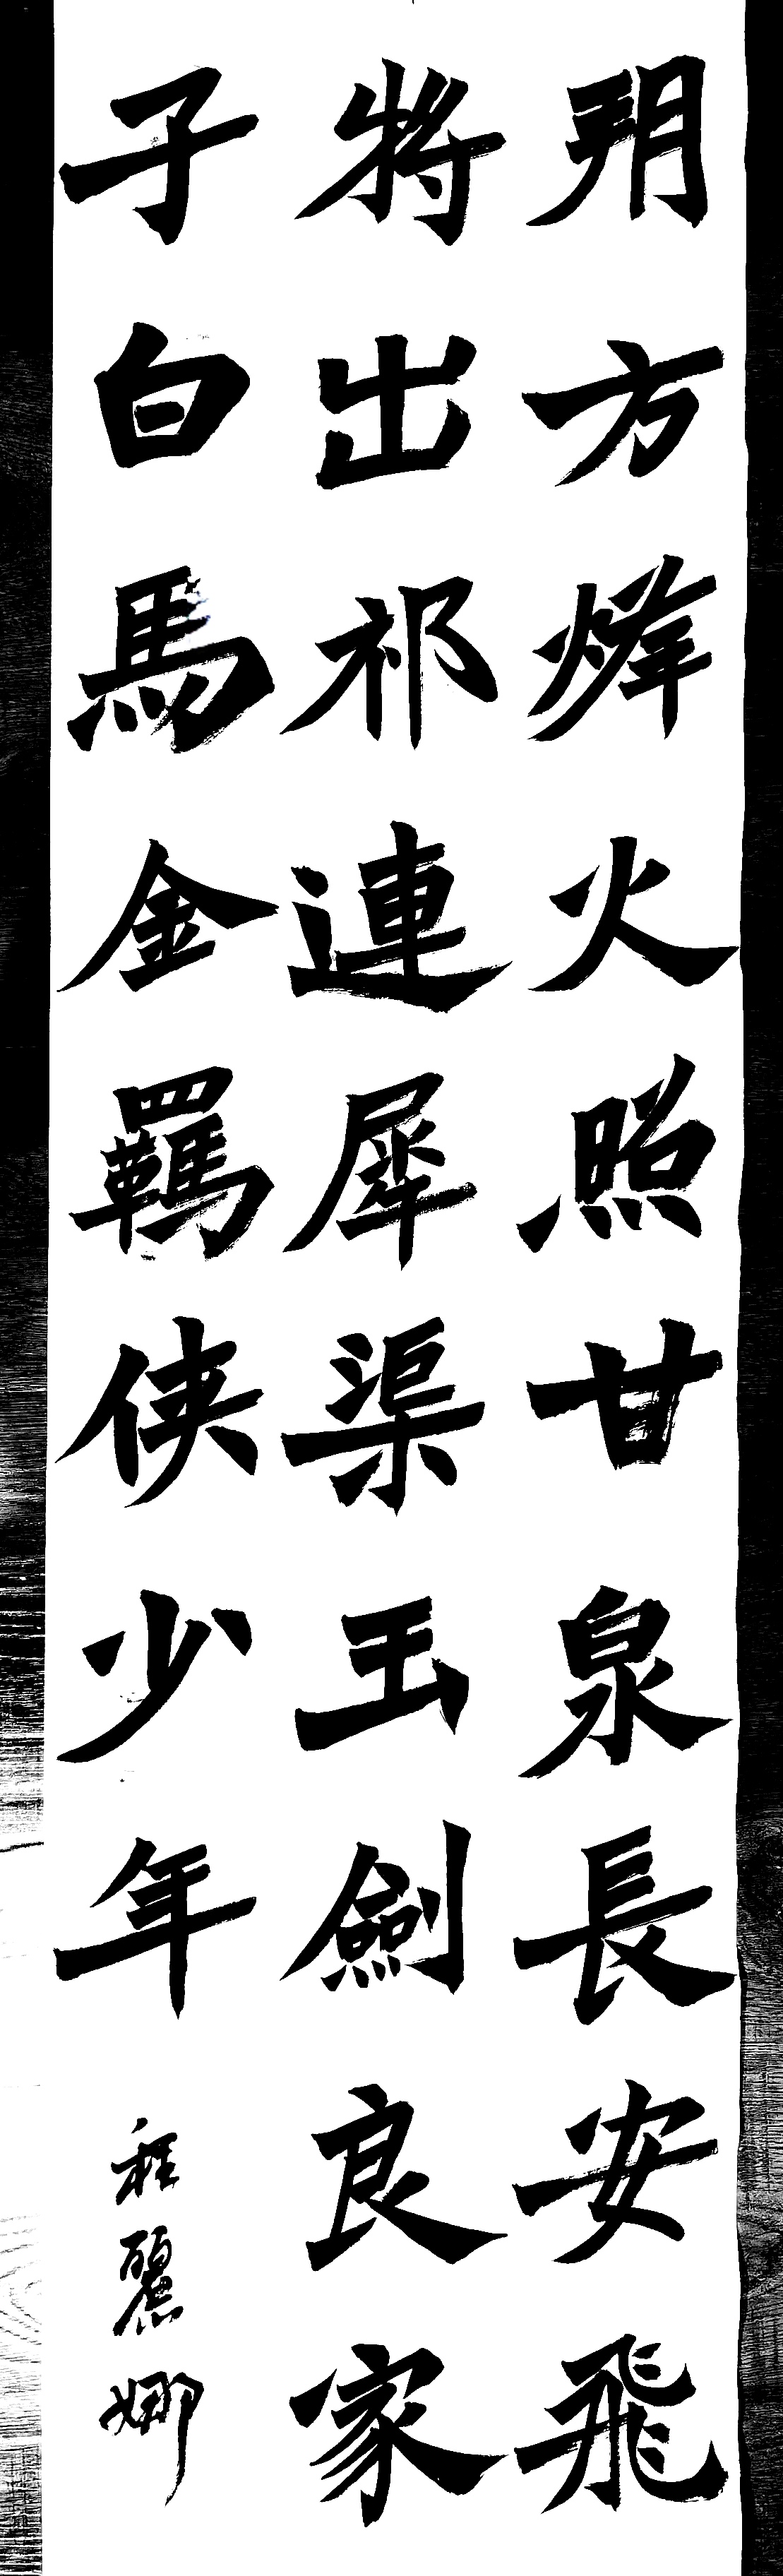 朔方烽火照甘泉長安飛
將出祁連犀渠玉劍良家
子白馬金羈俠少年
程麗娜